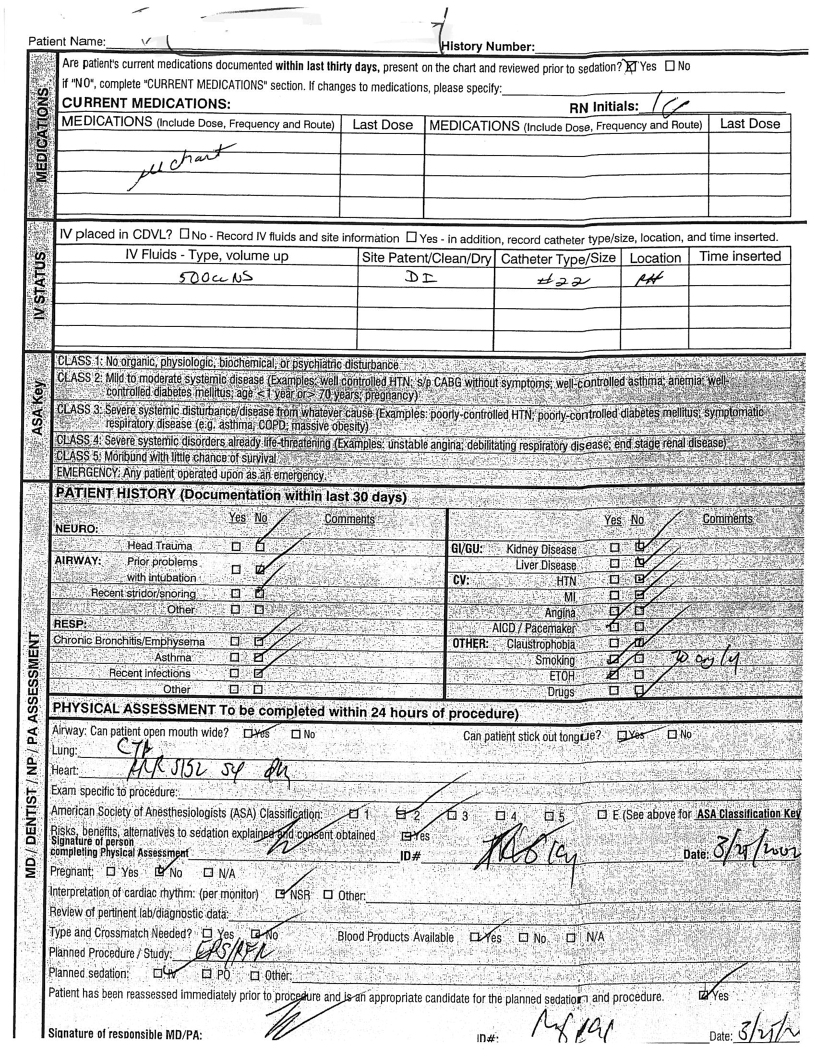 Patient Name:
History Number:
Are patient's current medications documented within last thirty days, present on the chart and reviewed prior to sedation? ☒ Yes ☐ No
if "NO", complete "CURRENT MEDICATIONS" section. If changes to medications, please specify:
CURRENT MEDICATIONS: RN Initials:
MEDICATIONS (Include Dose, Frequency and Route) Last Dose MEDICATIONS (Include Dose, Frequency and Route) Last Dose
chart
MEDICATIONS
IV placed in CDVL? ☐ No - Record IV fluids and site information ☐ Yes - in addition, record catheter type/size, location, and time inserted.
IV Fluids - Type, volume up Site Patent/Clean/Dry Catheter Type/Size Location Time inserted
500cc NS DI #22 RH
IV STATUS
CLASS 1: No organic, physiologic, biochemical, or psychiatric disturbance
CLASS 2: Mild to moderate systemic disease (Examples: well controlled HTN; s/p CABG without symptoms; well-controlled asthma; anemia; well-
controlled diabetes mellitus; age <1 year or> 70 years; pregnancy)
CLASS 3: Severe systemic disturbance/disease from whatever cause (Examples: poorly-controlled HTN; poorly-controlled diabetes mellitus; symptomatic
respiratory disease (e.g. asthma, COPD; massive obesity)
CLASS 4: Severe systemic disorders already life-threatening (Examples: unstable angina; debilitating respiratory disease; end stage renal disease)
CLASS 5: Moribund with little chance of survival
EMERGENCY: Any patient operated upon as an emergency.
ASA Key
PATIENT HISTORY (Documentation within last 30 days)
Yes No Comments
NEURO:
Head Trauma ☐ ☑
AIRWAY: Prior problems
with intubation ☐ ☑
Recent stridor/snoring ☐ ☑
Other ☐ ☐
RESP:
Chronic Bronchitis/Emphysema ☐ ☑
Asthma ☐ ☑
Recent infections ☐ ☑
Other ☐ ☐
Yes No Comments
GI/GU: Kidney Disease ☐ ☑
Liver Disease ☐ ☑
CV: HTN ☐ ☑
MI ☐ ☑
Angina ☐ ☑
AICD / Pacemaker ☑ ☐
OTHER: Claustrophobia ☐ ☑
Smoking ☑ ☐
ETOH ☑ ☐
Drugs ☐ ☑
PHYSICAL ASSESSMENT To be completed within 24 hours of procedure)
Airway: Can patient open mouth wide? ☑ Yes ☐ No Can patient stick out tongue? ☑ Yes ☐ No
Lung: CTA
Heart: RRR S1S2
Exam specific to procedure:
American Society of Anesthesiologists (ASA) Classification: ☐ 1 ☑ 2 ☐ 3 ☐ 4 ☐ 5 ☐ E (See above for ASA Classification Key
Risks, benefits, alternatives to sedation explained and consent obtained ☑ Yes
Signature of person
completing Physical Assessment ID# Date:
Pregnant: ☐ Yes ☑ No ☐ N/A
Interpretation of cardiac rhythm: (per monitor) ☑ NSR ☐ Other:
Review of pertinent lab/diagnostic data:
Type and Crossmatch Needed? ☐ Yes ☑ No Blood Products Available ☑ Yes ☐ No ☐ N/A
Planned Procedure / Study: EPS/RFA
Planned sedation: ☑ IV ☐ PO ☐ Other:
Patient has been reassessed immediately prior to procedure and is an appropriate candidate for the planned sedation and procedure. ☑ Yes
Signature of responsible MD/PA: ID#: Date:
MD / DENTIST / NP / PA ASSESSMENT